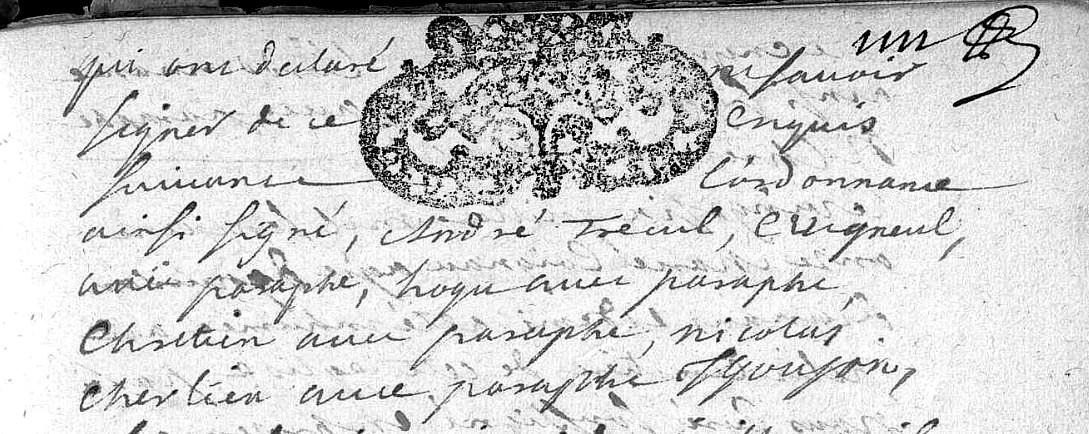 un
qui ont déclaré ne savoir
signer de ce Enquis
suivance L'ordonnance
ainsi signé, André Treuil, Cvigneul,
avec paraphe, hoqu avec paraphe,
Chretien avec paraphe, nicolas
Chertien avec paraphe